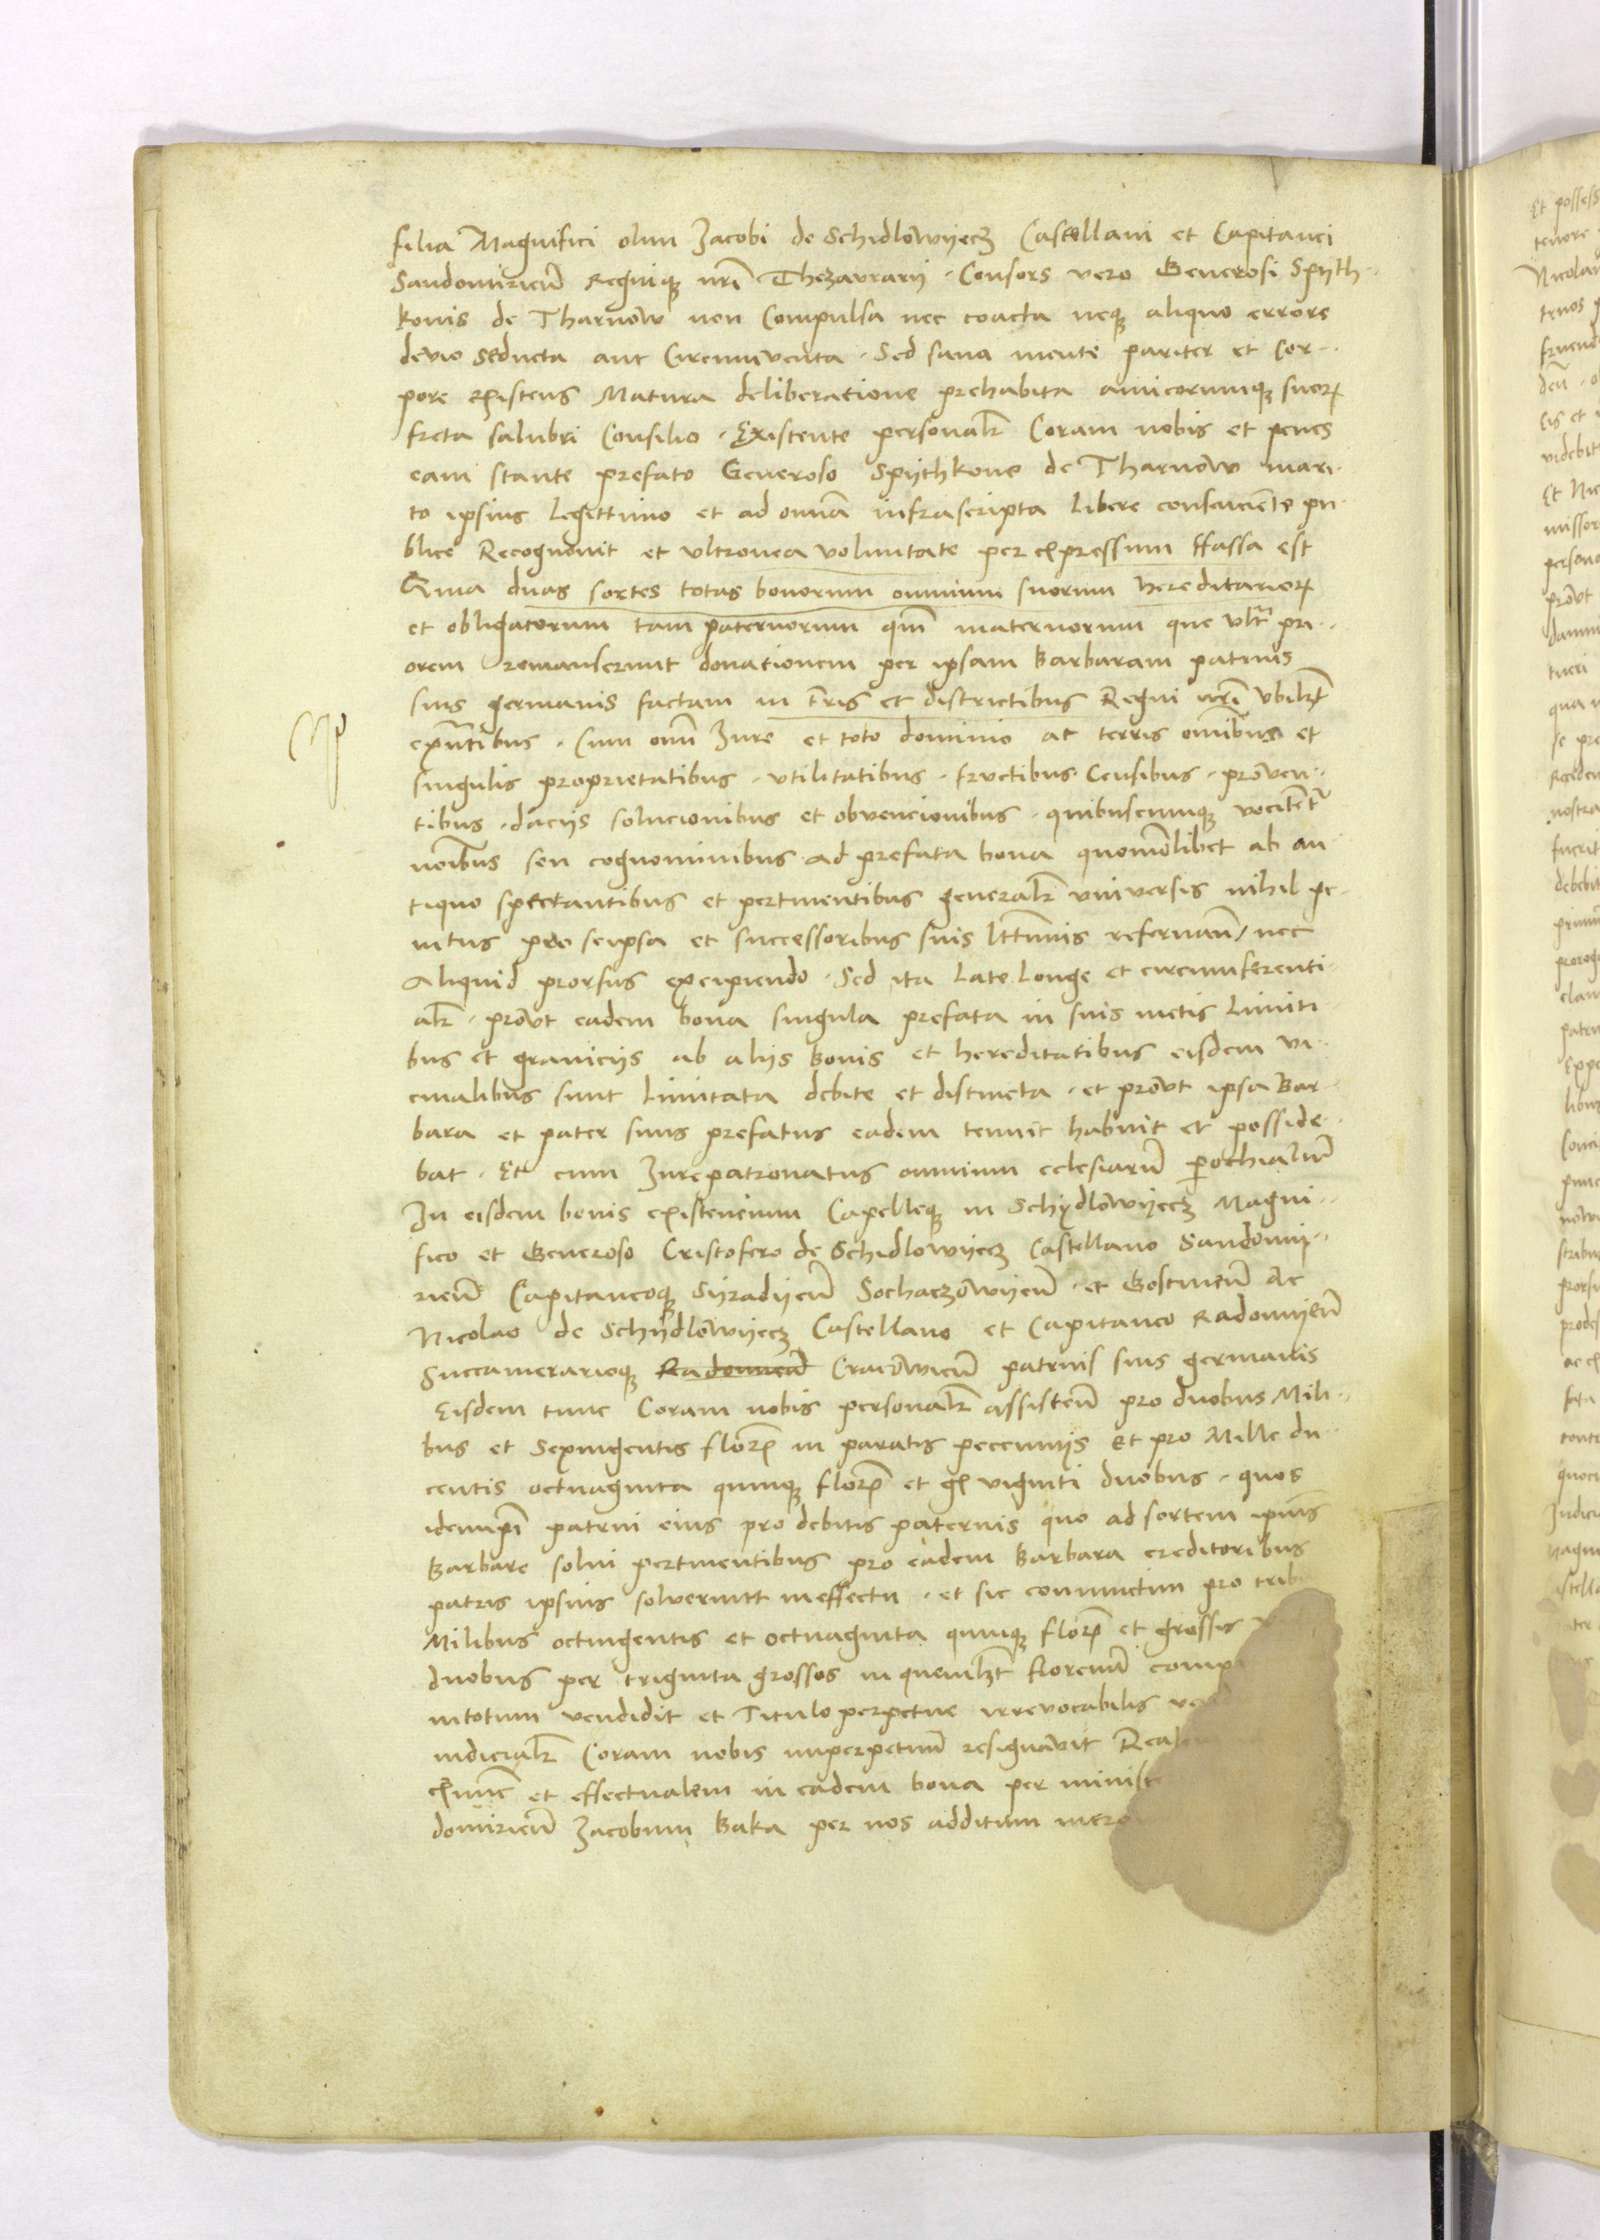 filia Magnifici olim Jacobi de Schidlowyecz Castellani et Capitanei
Sandomirień Regnique nrī Thezaurarii · Consors vero Generosi Spyth
konis de Tharnow non Compulsa nec coacta neque aliquo errore
devio seducta aut Circumventa · Sed sana mente pariter et Cor
pore existens Matura deliberatione prehabita amicorumque suorum
freta salubri Consilio · Existente personaliter Coram nobis et penes
eam stante prefato Generoso Spythkone de Tharnow mari
to ipsius legittimo et ad omnia infrascripta libere consenciente pu
blice Recognovit et ultronea voluntate per expressum ffassa est
Quia duas sortes totas bonorum omnium suorum hereditariorum
et obligatorum tam paternorum qm̄ maternorum que ultra pri
orem remanserunt donationem per ipsam Barbaram patruis
suis germanis factam in terris et districtibus Regni nrī ubilibet
exn̄tibus · Cum omni Jure et toto dominio ac terris omnibus et
singulis proprietatibus · utilitatibus · fructibus Censibus · proven
tibus · daciis solucionibus et obvencionibus · quibuscumque vocitent
noībus seu cognominibus ad prefata bona quomodolibet ab an
tiquo spectantibus et pertinentibus generaliter universis nihil pe
nitus pro seipsa et successoribus suis lttimis reservan̄ / nec
aliquid prorsus excipiendo · Sed ita late longe et circumferenti
aliter · prout eadem bona singula prefata in suis metis limiti
bus et graniciis ab aliis bonis et hereditatibus eisdem vi
cinalibus sunt limitata debite et distincta · et prout ipsa Bar
bara et pater suus prefatus eadem tenuit habuit et posside
bat · Et cum Jurepatronatus omnium eclesiarum parochialium
In eisdem bonis existencium Capelleque in Schydlowyecz Magni
fico et Generoso Cristofero de Schidlowyecz Castellano Sandomi
rień Capitaneoque Syradyeń Sochaczowyeń · et Gostineń Ac
Nicolao de Schydlowyecz Castellano et Capitaneo Radomyeń
Succamerarioque Radomień Cracowień patruis suis germanis
Eisdem tunc Coram nobis personaliter assisteń pro duobus Mili
bus et Sexingentis floreṇ in paratis peccuniis Et pro Mille du
centis octuaginta quinque floreṇ et gr viginti duobus · quos
idem ip̄i patrui eius pro debitis paternis quo ad sortem ipius
Barbare solui pertinentibus pro eadem Barbara creditoribus
patris ipsius solverunt ineffectu · et sic coniunctim pro trib
Milibus octingentis et octuaginta quinque floreṇ et grossis
duobus per triginta grossos in quemlibet florenum comp
intotum vendidit et Titulo perpetue irrevocabilis
iudicialiter Coram nobis imperpetuum resignavit
et effectualem in eadem bona per minist
domirień Jacobum Baka per nos additum